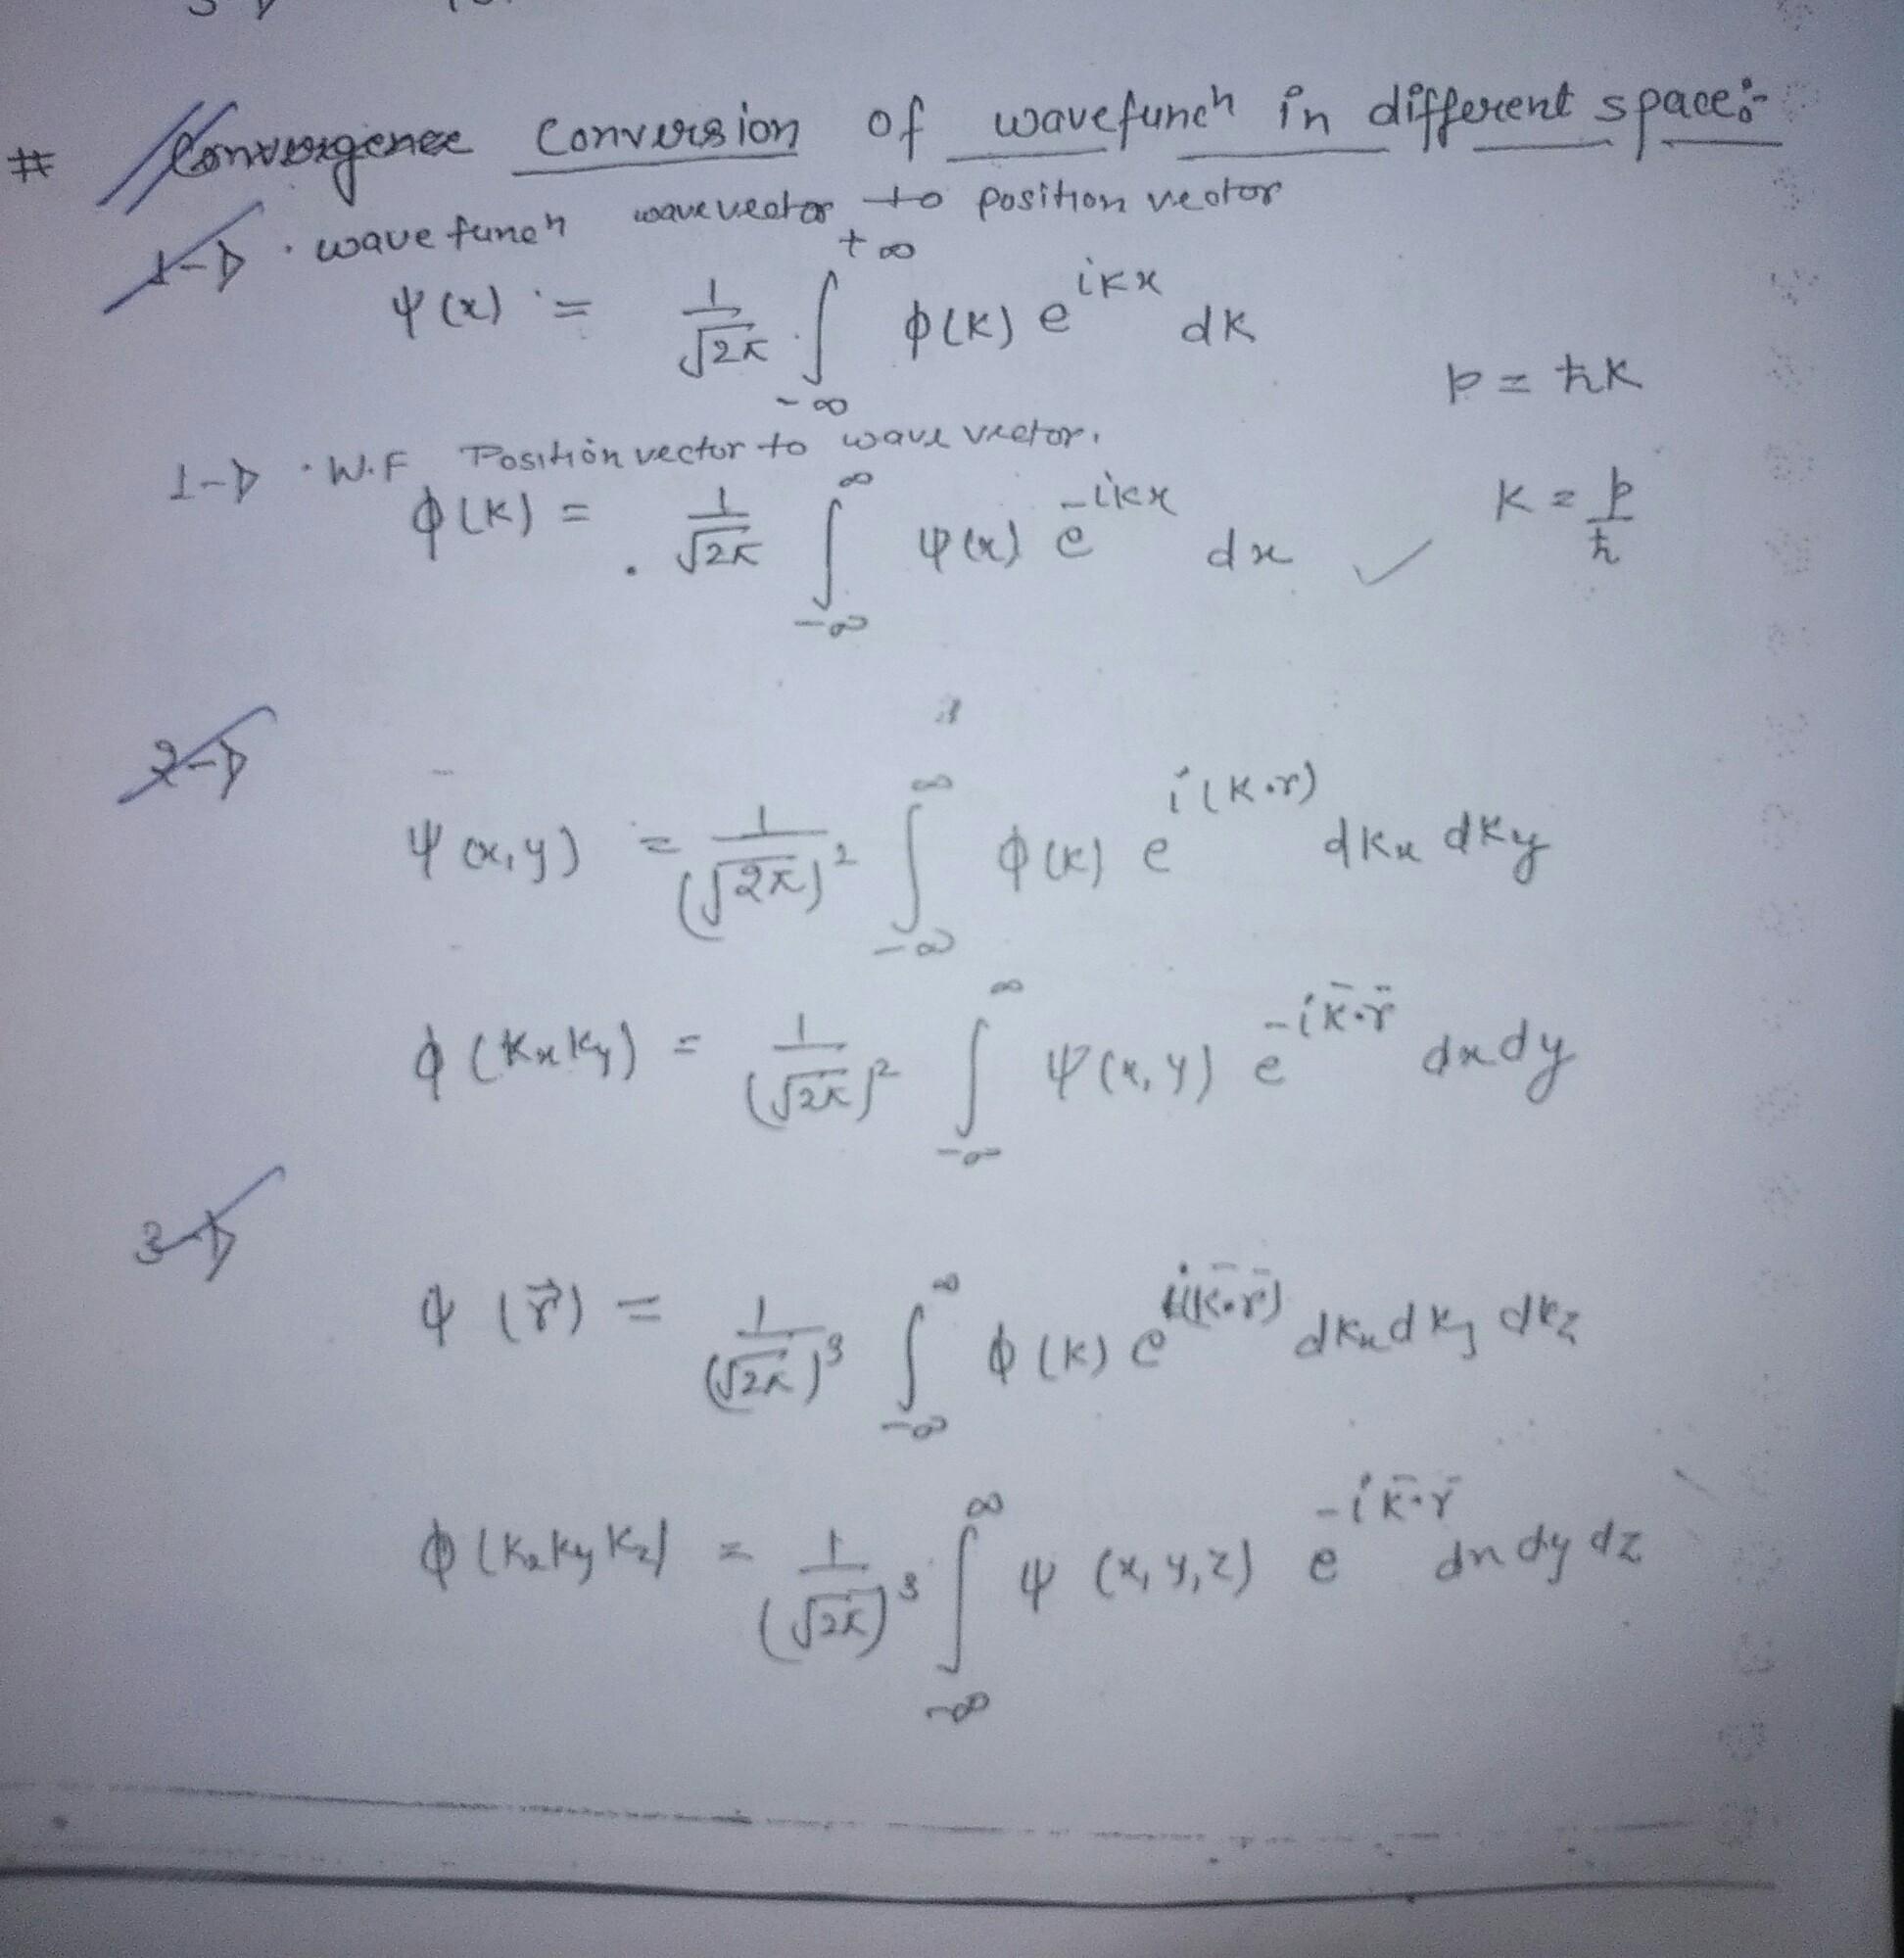 # Convergence Conversion of wavefunch in different space:-
1-D . wave funch wavevector to position vector
ψ(x) = 1/√2π ∫_{-∞}^{+∞} ϕ(k) e^{ikx} dk
p = ħk
1-D . W.F Position vector to wave vector.
ϕ(k) = 1/√2π ∫_{-∞}^{∞} ψ(x) e^{-ikx} dx ✓
k = p/ħ
2-D
ψ(x,y) = 1/(√2π)² ∫_{-∞}^{∞} ϕ(k) e^{i(k·r)} dkx dky
ϕ(kx ky) = 1/(√2π)² ∫_{-∞}^{∞} ψ(x,y) e^{-ik̄·r̄} dx dy
3-D
ψ(r⃗) = 1/(√2π)³ ∫_{-∞}^{∞} ϕ(k) e^{i(k̄·r̄)} dkx dky dkz
ϕ(kx ky kz) = 1/(√2π)³ ∫_{-∞}^{∞} ψ(x,y,z) e^{-ik̄·r̄} dx dy dz